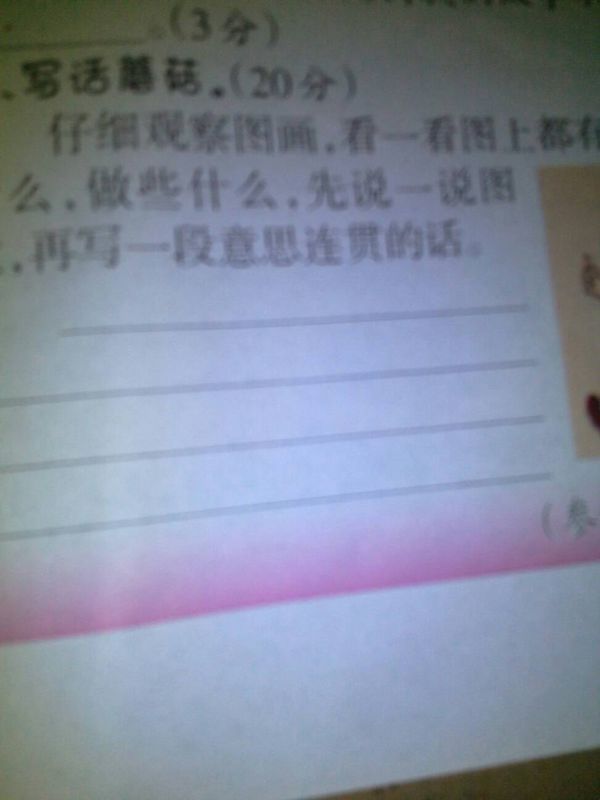 。(3分)
、写话蘑菇。(20分)
仔细观察图画,看一看图上都有
么,做些什么,先说一说图
,再写一段意思连贯的话。
(参